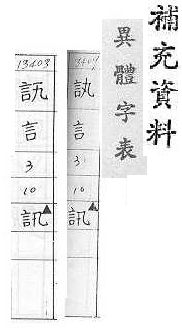 補充資料
異體字表
言
3
10
訊▲
13403
言
3
10
訊▲